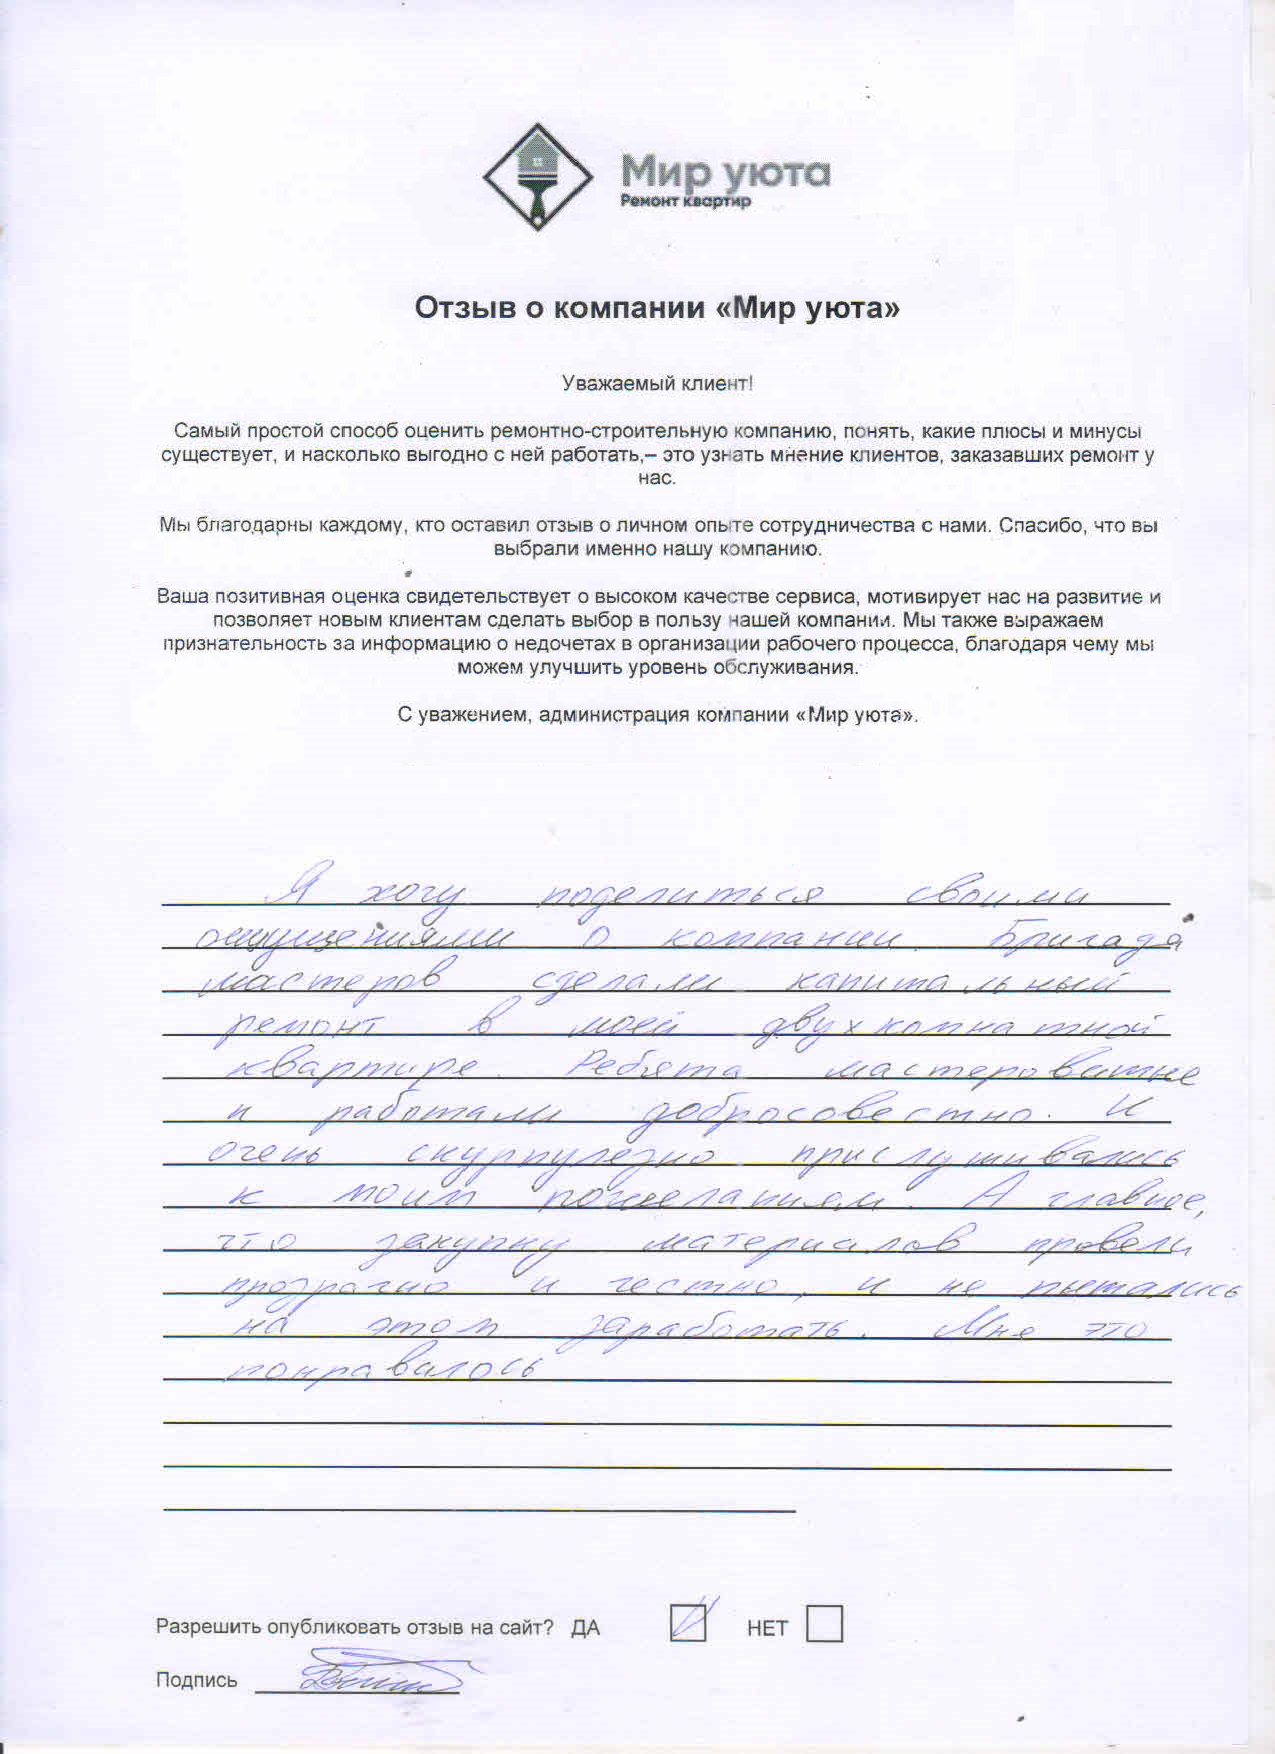 Мир уюта
Ремонт квартир
Отзыв о компании «Мир уюта»
Уважаемый клиент!
Самый простой способ оценить ремонтно-строительную компанию, понять, какие плюсы и минусы
существует, и насколько выгодно с ней работать,– это узнать мнение клиентов, заказавших ремонт у
нас.
Мы благодарны каждому, кто оставил отзыв о личном опыте сотрудничества с нами. Спасибо, что вы
выбрали именно нашу компанию.
Ваша позитивная оценка свидетельствует о высоком качестве сервиса, мотивирует нас на развитие и
позволяет новым клиентам сделать выбор в пользу нашей компании. Мы также выражаем
признательность за информацию о недочетах в организации рабочего процесса, благодаря чему мы
можем улучшить уровень обслуживания.
С уважением, администрация компании «Мир уюта».
Я хочу поделиться своими
ощущениями о компании. Бригада
мастеров сделали капитальный
ремонт в моей двухкомнатной
квартире. Ребята мастеровитые
и работали добросовестно. И
очень скурпулезно прислушивались
к моим пожеланиям. А главное,
что закупку материалов провели
прозрачно и честно, и не пытались
на этом заработать. Мне это
понравалось
Разрешить опубликовать отзыв на сайт? ДА НЕТ
Подпись